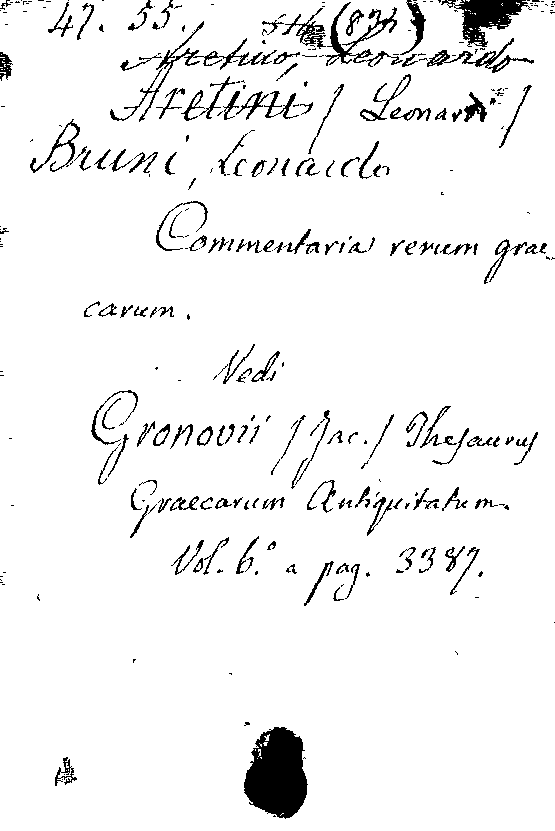 47. 55.
Aretino, Leonardo
Aretini / Leonardi /
Bruni, Leonardo
Commentaria rerum grae-
carum.
Vedi
Gronovii / Jac. / Thesaurus
Graecarum Antiquitatum.
Vol. 6.° a pag. 3387.